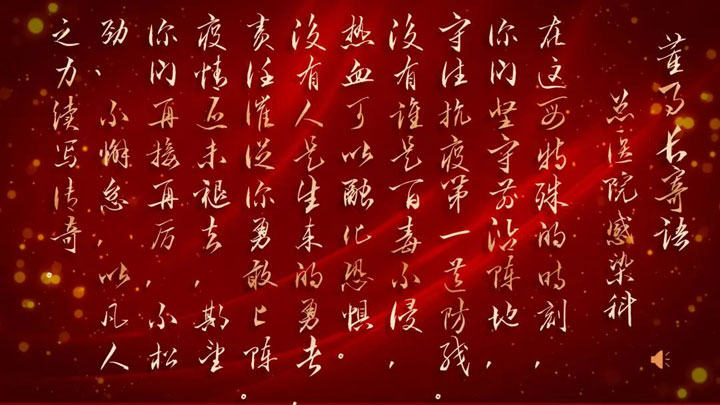 董事长寄语
总医院感染科
在这特殊的时刻，
你们坚守前沿阵地，
守住抗疫第一道防线，
没有谁是百毒不侵，
热血可以融化恐惧。
没有人是生来的勇者，
责任催促你勇敢上阵。
疫情还未褪去，期望
你们再接再厉，不松
劲、不懈怠，以凡人
之力续写传奇。